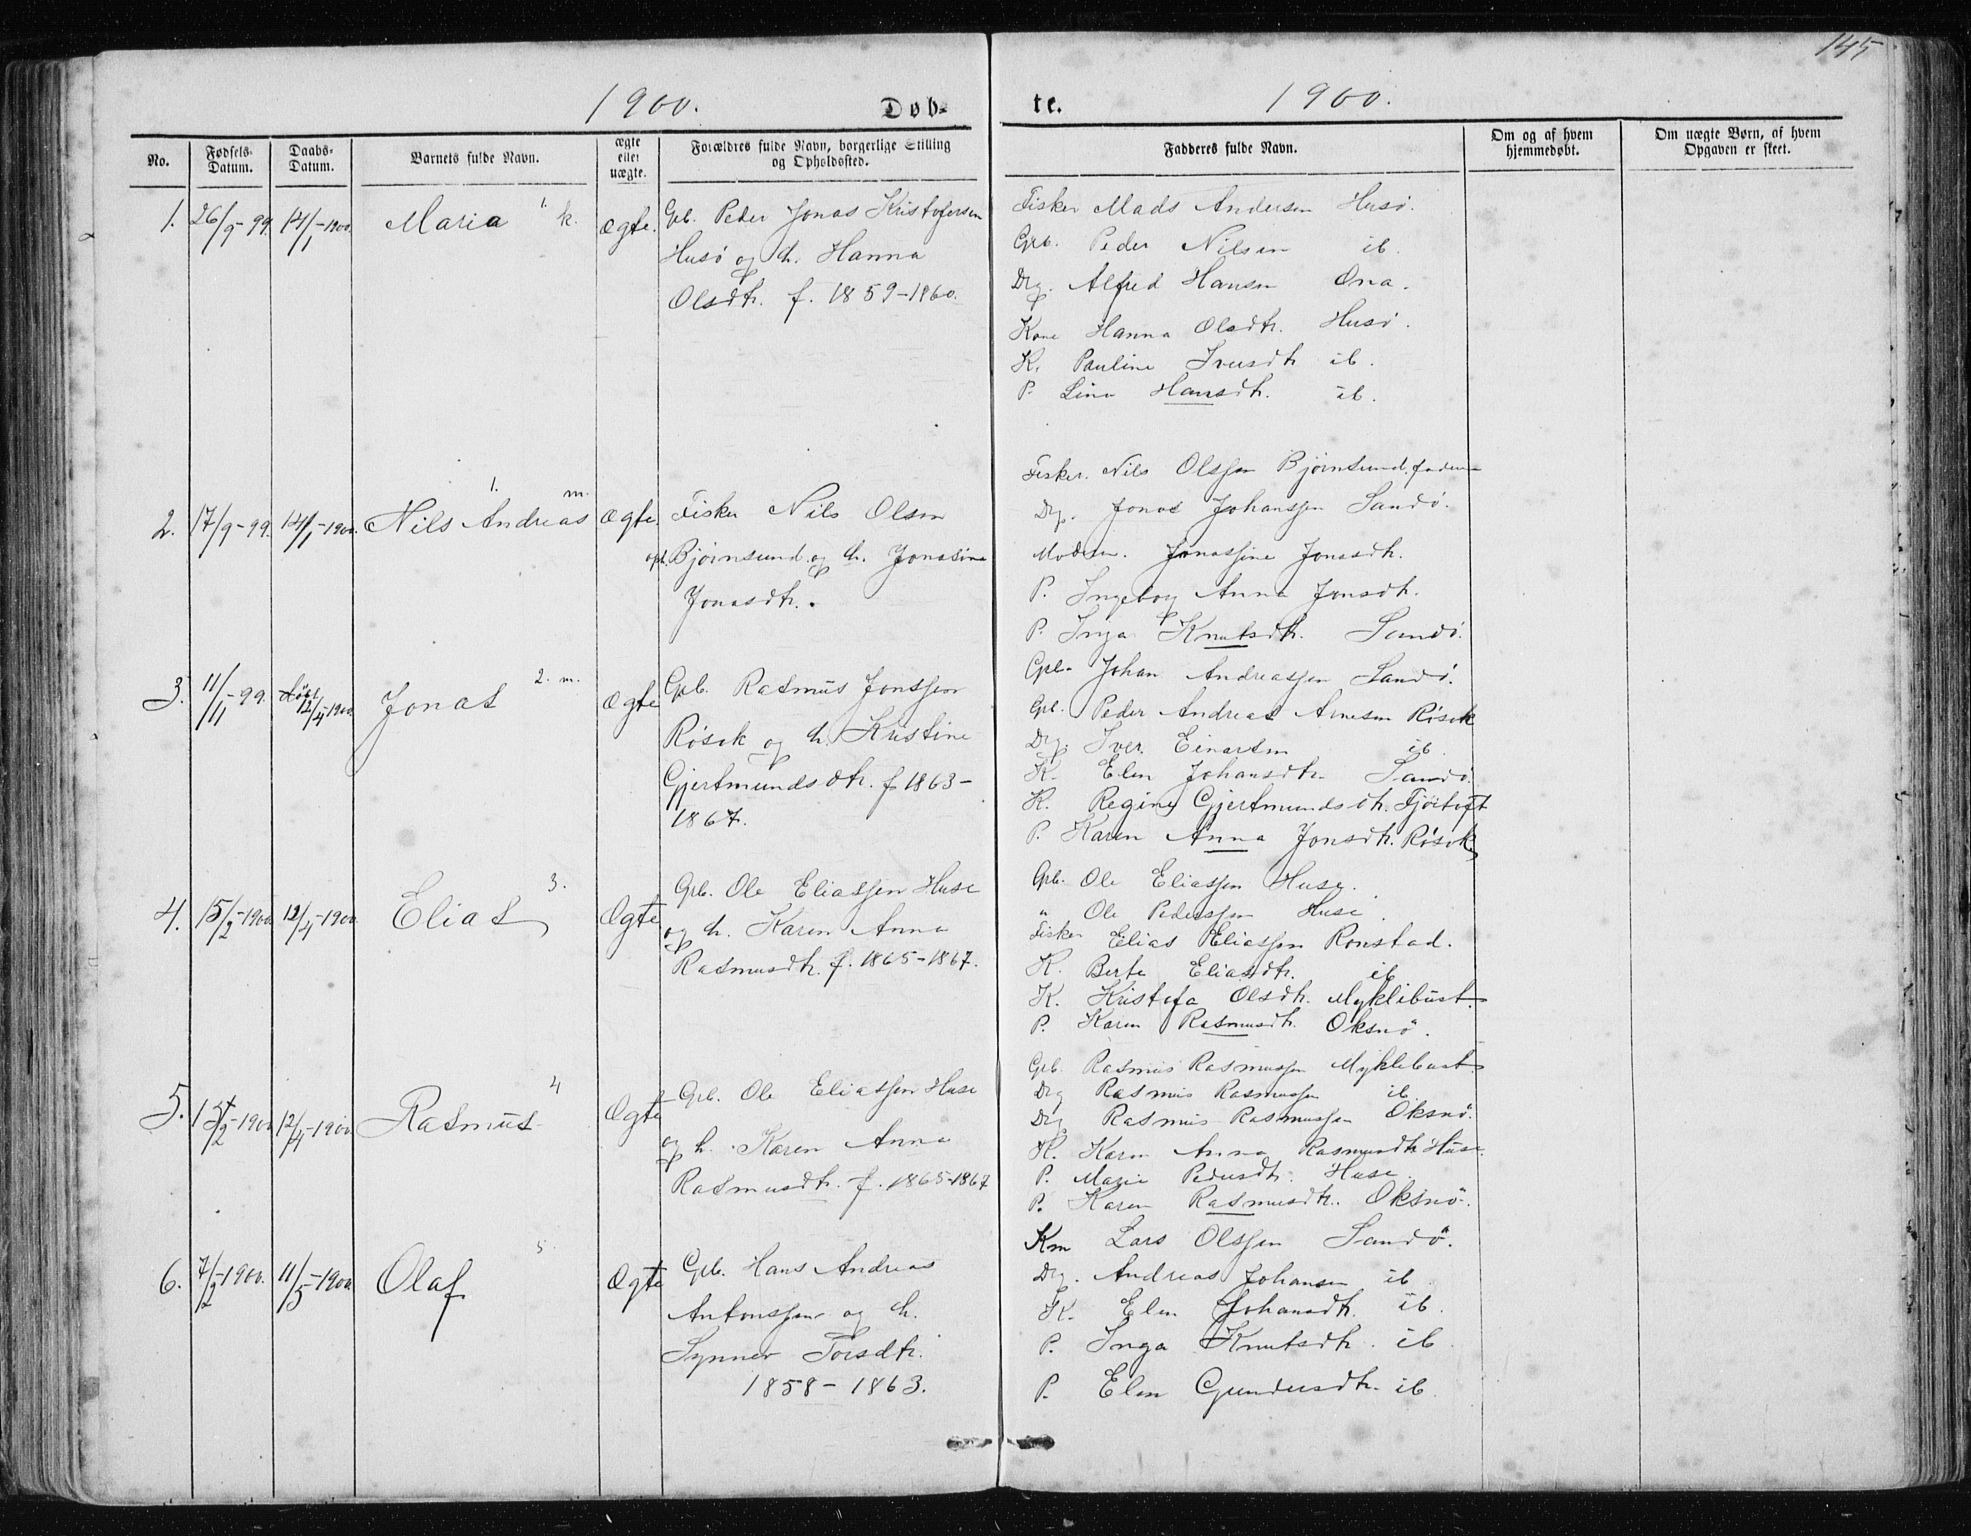 145
1900. Døb-
te. 1900.
No.
Fødsels-
Datum.
Daabs-
Datum.
Barnets fulde Navn.
ægte
eller
uægte.
Forældres fulde Navn, borgerlige Stilling
og Opholdssted.
Fadderes fulde Navn.
Om og af hvem
hjemmedøbt.
Om uægte Børn, af hvem
Opgaven er skeet.
1. 26/9-99. 14/1-1900. Maria 1. k. Ægte.
Gbr. Peder Jonas Kristofersen
Husø og h. Hanna
Olsdtr. f. 1859-1860.
Fisker Mads Andersen Husø.
Gbr. Peder Nilsen ib.
Drg. Alfred Hansen Ona.
Kone Hanna Olsdtr. Husø.
K. Pauline Iversdtr ib.
P. Lina Hansdtr. ib.
2. 17/9-99. 14/1-1900. Nils Andreas 1. m. Ægte.
Fisker Nils Olsen
Bjørnsund og h. Jonasine
Jonasdtr.
Fisker. Nils Olssen Bjørnsund, faderen
Drg. Jonas Johanssen Sandø.
Moderen. Jonassine Jonasdtr.
P. Ingeborg Anna Jonsdtr.
P. Inga Knutsdtr. Sandø.
3. 11/11-99. 12/4-1900. Jonas 2. m. Ægte
Gbr. Rasmus Jonssen
Røsok og h. Kristine
Gjertmundsdtr. f 1863-
1867.
Gbr. Johan Andreassen Sandø.
Gbr. Peder Andreas Arnesen Røsok
Drg. Iver Einarsen ib.
K. Elen Johansdtr. Sandø.
K. Regine Gjertmundsdtr. Fjørtoft
P. Karen Anna Jonsdtr. Røsok
4. 15/2-1900 12/4-1900 Elias 3. Ægte
Gbr. Ole Eliassen Huse
og h. Karen Anna
Rasmusdtr. f. 1865-1867.
Gbr. Ole Eliassen Huse.
" Ole Pederssen Huse.
Fisker Elias Eliassen Ronstad.
K. Berte Eliasdtr. ib
K. Kristofa Olsdtr. Myklebust
P. Karen Rasmusdtr. Oksnø.
5. 15/2-1900 12/4-1900 Rasmus 4 Ægte
Gbr. Ole Eliassen Huse
og h. Karen Anna
Rasmusdtr. f. 1865-1867
Gbr. Rasmus Rasmussen Myklebust
Drg Rasmus Rasmussen ib.
Drg Rasmus Rasmussen Oksnø.
K. Karen Anna Rasmusdtr Huse
P. Marie Pedersdtr. Huse
P. Karen Rasmusdtr. Oksnø.
6. 7/2-1900. 11/5-1900 Olaf 5. Ægte
Gbr. Hans Andreas
Antonssen og h.
Synnev Torsdtr.
1858-1863.
Km Lars Olssen Sandø.
Drg. Andreas Johansen ib
K. Elen Johansdtr. ib.
P. Inga Knutsdtr. ib
P. Elen Gundersdtr. ib.